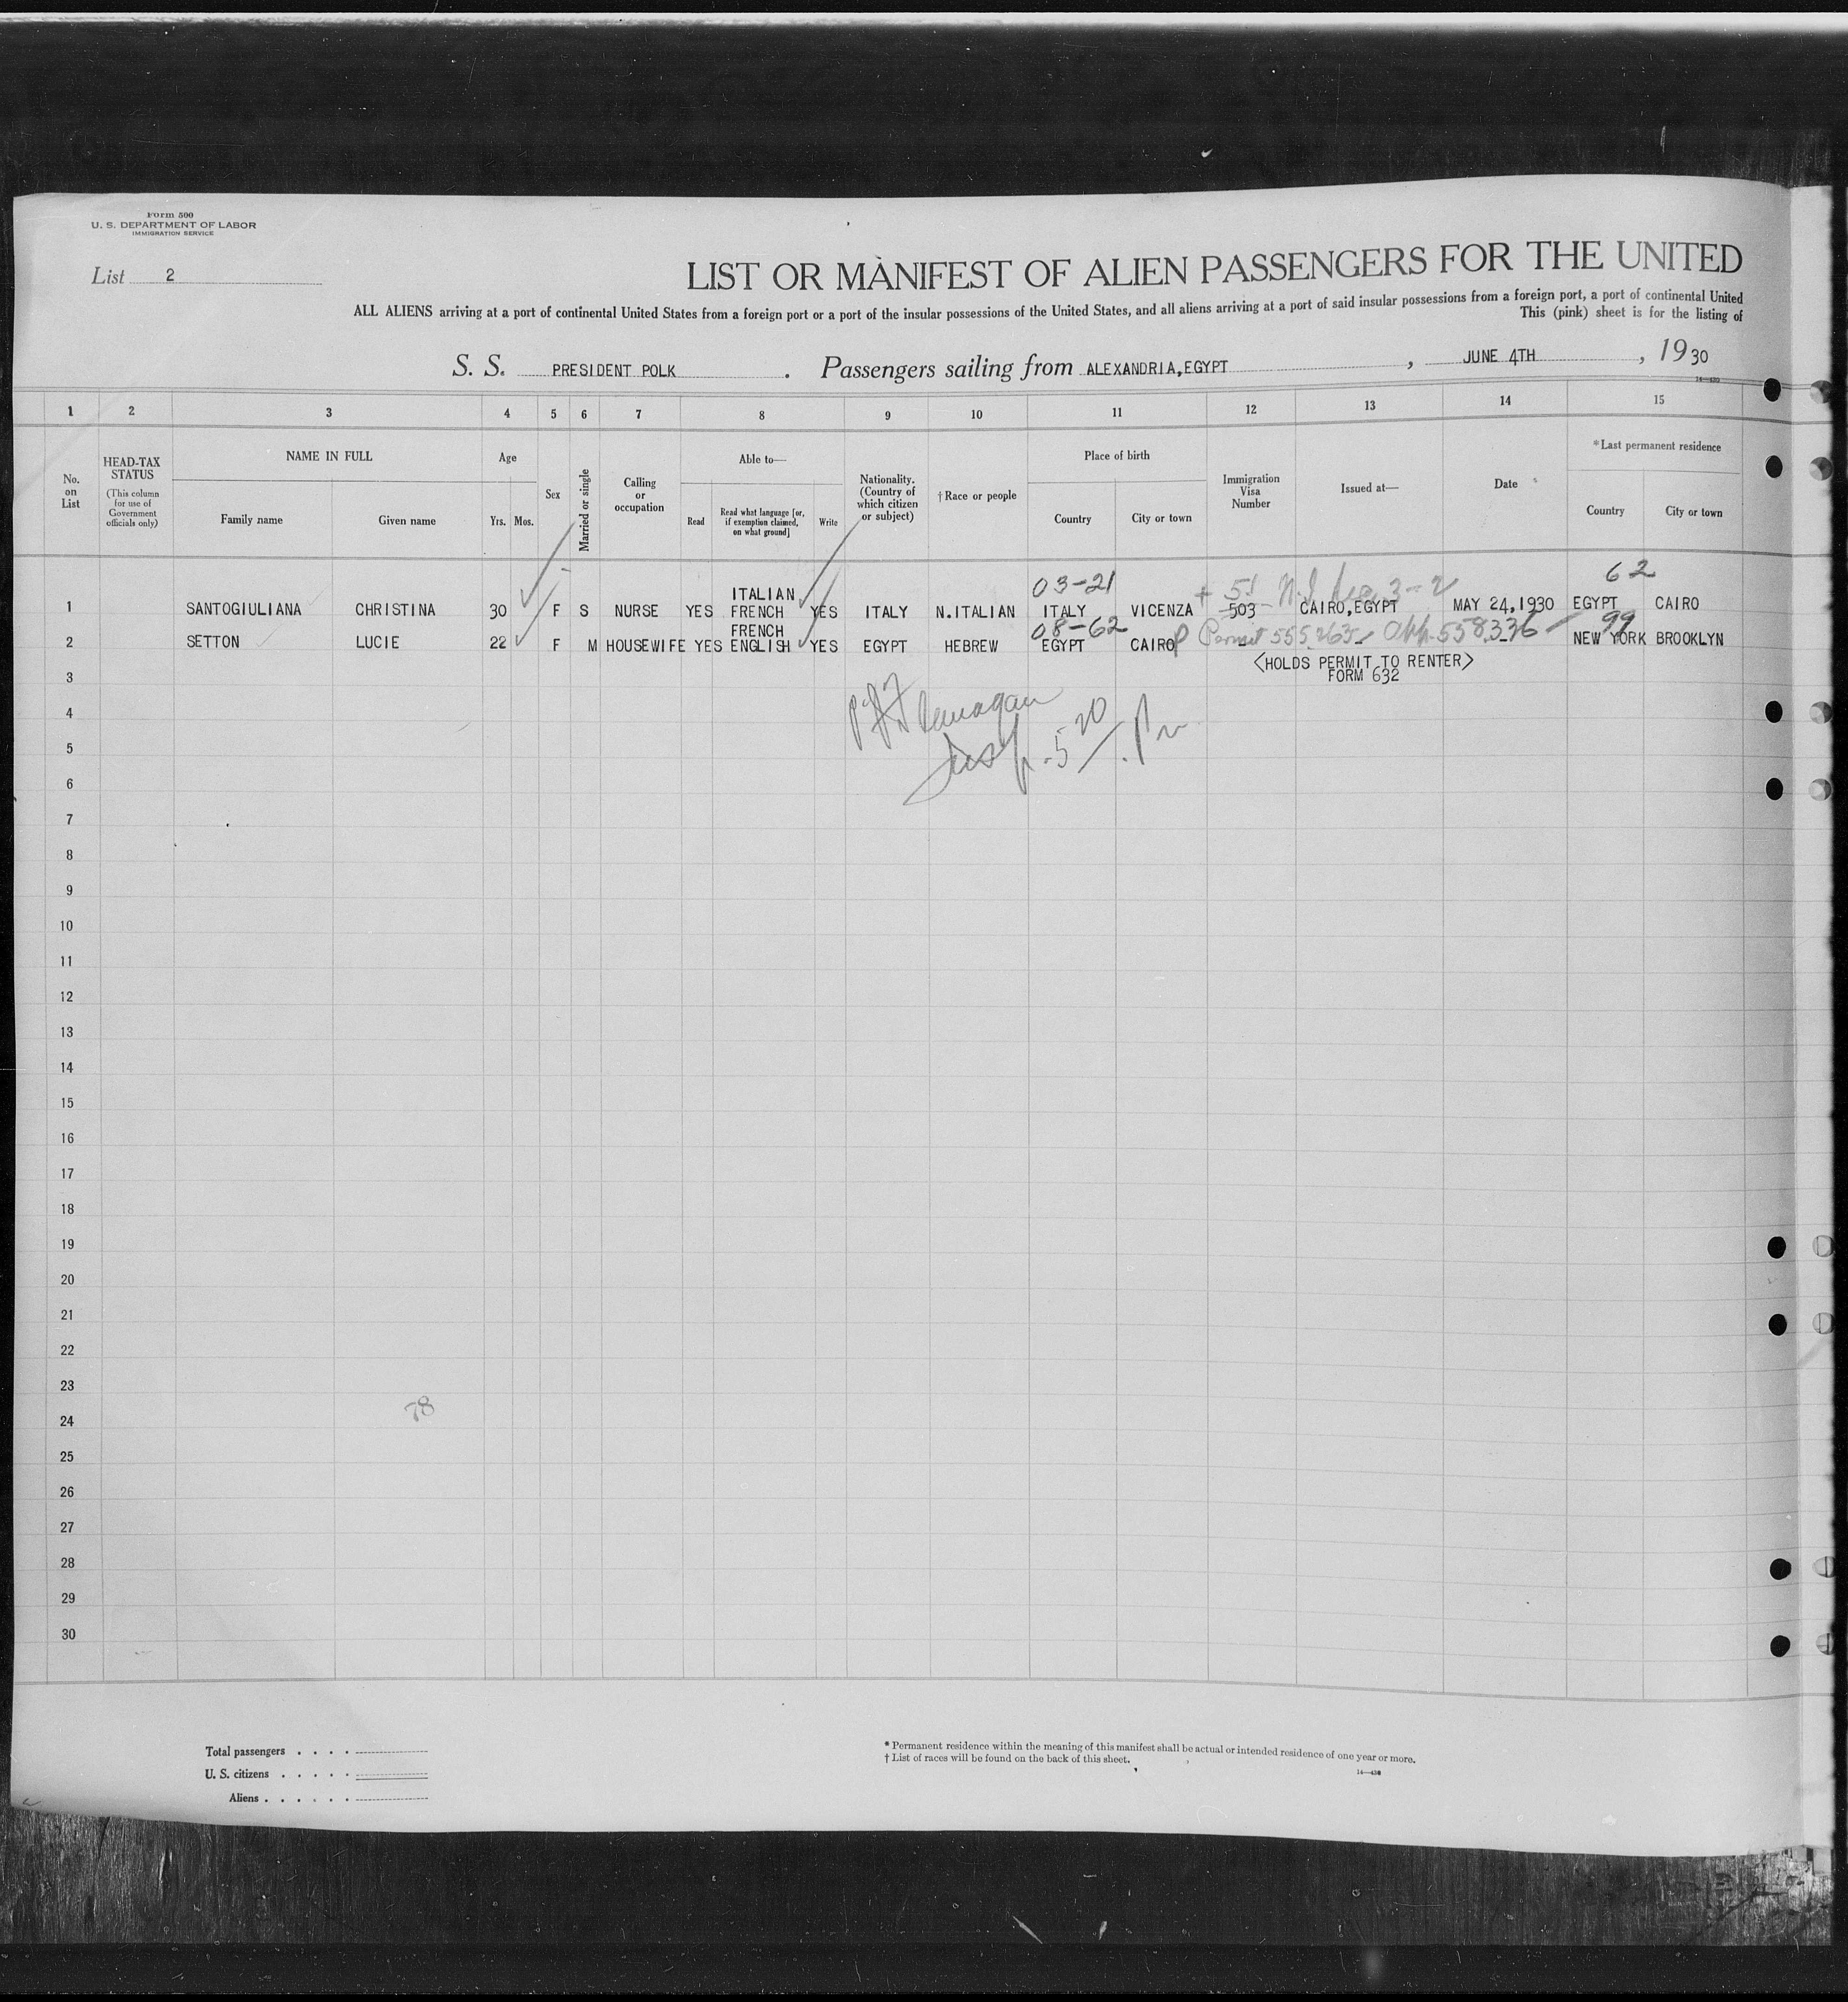 Form 500
U. S. DEPARTMENT OF LABOR
IMMIGRATION SERVICE
List 2
LIST OR MANIFEST OF ALIEN PASSENGERS FOR THE UNITED
ALL ALIENS arriving at a port of continental United States from a foreign port or a port of the insular possessions of the United States, and all aliens arriving at a port of said insular possessions from a foreign port, a port of continental United
This (pink) sheet is for the listing of
S. S. PRESIDENT POLK . Passengers sailing from ALEXANDRIA, EGYPT , JUNE 4TH , 1930
1 2 3 4 5 6 7 8 9 10 11 12 13 14 15
No. on List
HEAD-TAX STATUS
(This column for use of Government officials only)
NAME IN FULL
Family name Given name
Age
Yrs. Mos.
Sex
Married or single
Calling or occupation
Able to—
Read
Read what language [or, if exemption claimed, on what ground]
Write
Nationality. (Country of which citizen or subject)
† Race or people
Place of birth
Country City or town
Immigration Visa Number
Issued at—
Date
* Last permanent residence
Country City or town
03-21 62
ITALIAN
1 SANTOGIULIANA CHRISTINA 30 F S NURSE YES FRENCH YES ITALY N.ITALIAN ITALY VICENZA 503 CAIRO, EGYPT MAY 24, 1930 EGYPT CAIRO
FRENCH 08-62 Permit 555263 App. 558336 99
2 SETTON LUCIE 22 F M HOUSEWIFE YES ENGLISH YES EGYPT HEBREW EGYPT CAIRO NEW YORK BROOKLYN
<HOLDS PERMIT TO RENTER>
3 FORM 632
4
5
6
7
8
9
10
11
12
13
14
15
16
17
18
19
20
21
22
23
78
24
25
26
27
28
29
30
Total passengers . . . .
U. S. citizens . . . . .
Aliens . . . . . .
* Permanent residence within the meaning of this manifest shall be actual or intended residence of one year or more.
† List of races will be found on the back of this sheet.